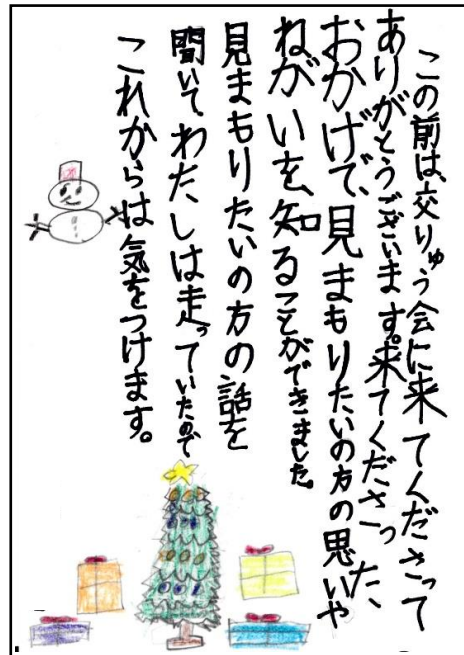 この前は、交りゅう会に来てくださって
ありがとうございます。来てくださった、
おかげで、見まもりたいの方の思いや
ねがいを、知ることができました。
見まもりたいの方の話を
聞いてわたしは走っていたので
これからは気をつけます。